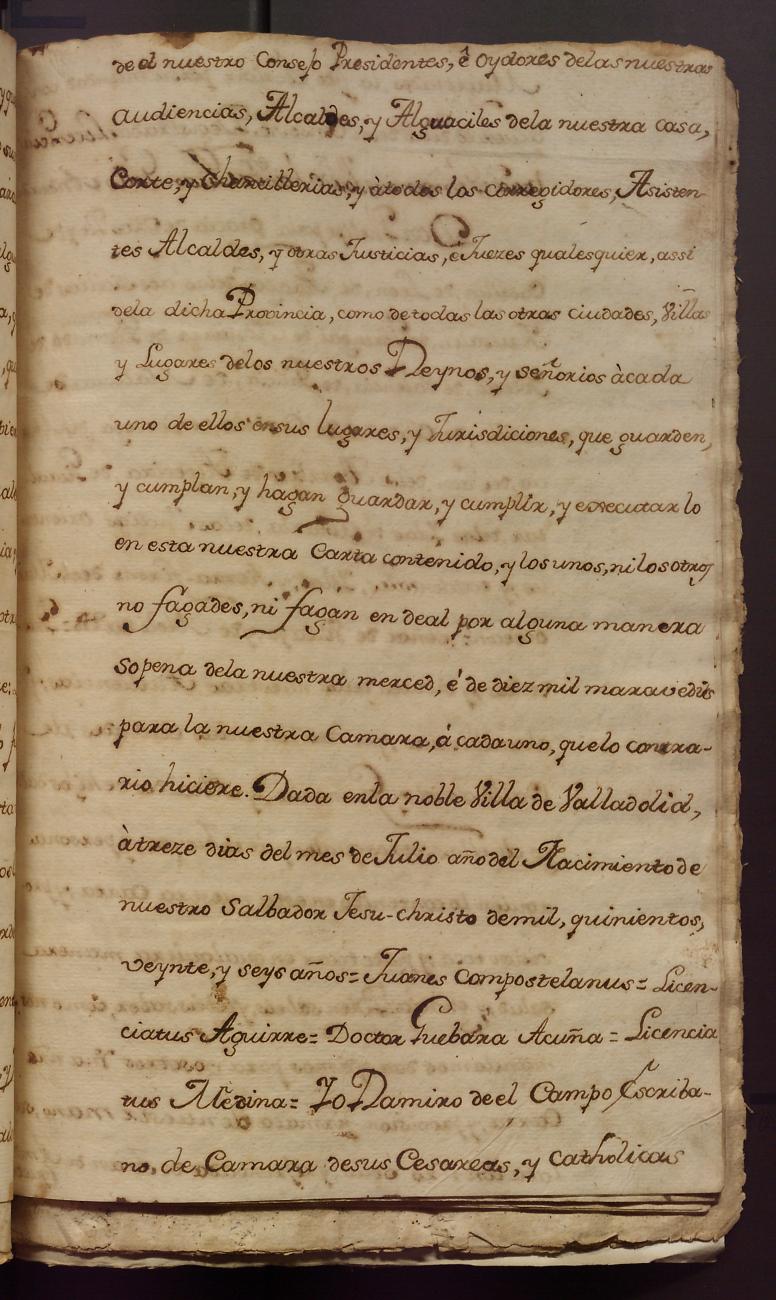 de el nuestro Consejo Presidentes, ê Oydores delas nuestras
audiencias, Alcaldes, y Alguaciles dela nuestra casa,
Corte, y Chancillerias, y à todos los corregidores, Asisten-
tes Alcaldes, y otras Justicias, e Juezes qualesquier, assi
dela dicha Provincia, como de todas las otras ciudades, Villas
y Lugares delos nuestros Reynos, y señorios à cada
uno de ellos en sus lugares, y Jurisdiciones, que guarden,
y cumplan, y hagan guardar, y cumplir, y executar lo
en esta nuestra Carta contenido, y los unos, ni los otros
no fagades, ni fagan en deal por alguna manera
so pena dela nuestra merced, é de diez mil maravedis
para la nuestra Camara, á cada uno, quelo contra-
rio hiciere. Dada enla noble Villa de Valladolid,
à treze dias del mes de Julio año del Nacimiento de
nuestro Salbador Jesu-christo de mil, quinientos,
veynte, y seys años= Juanes Compostelanus= Licen-
ciatus Aguirre= Doctor Guebara Acuña= Licencia
tus Medina= Yo Ramiro de el Campo Escriba-
no de Camara de sus Cesareas, y catholicas